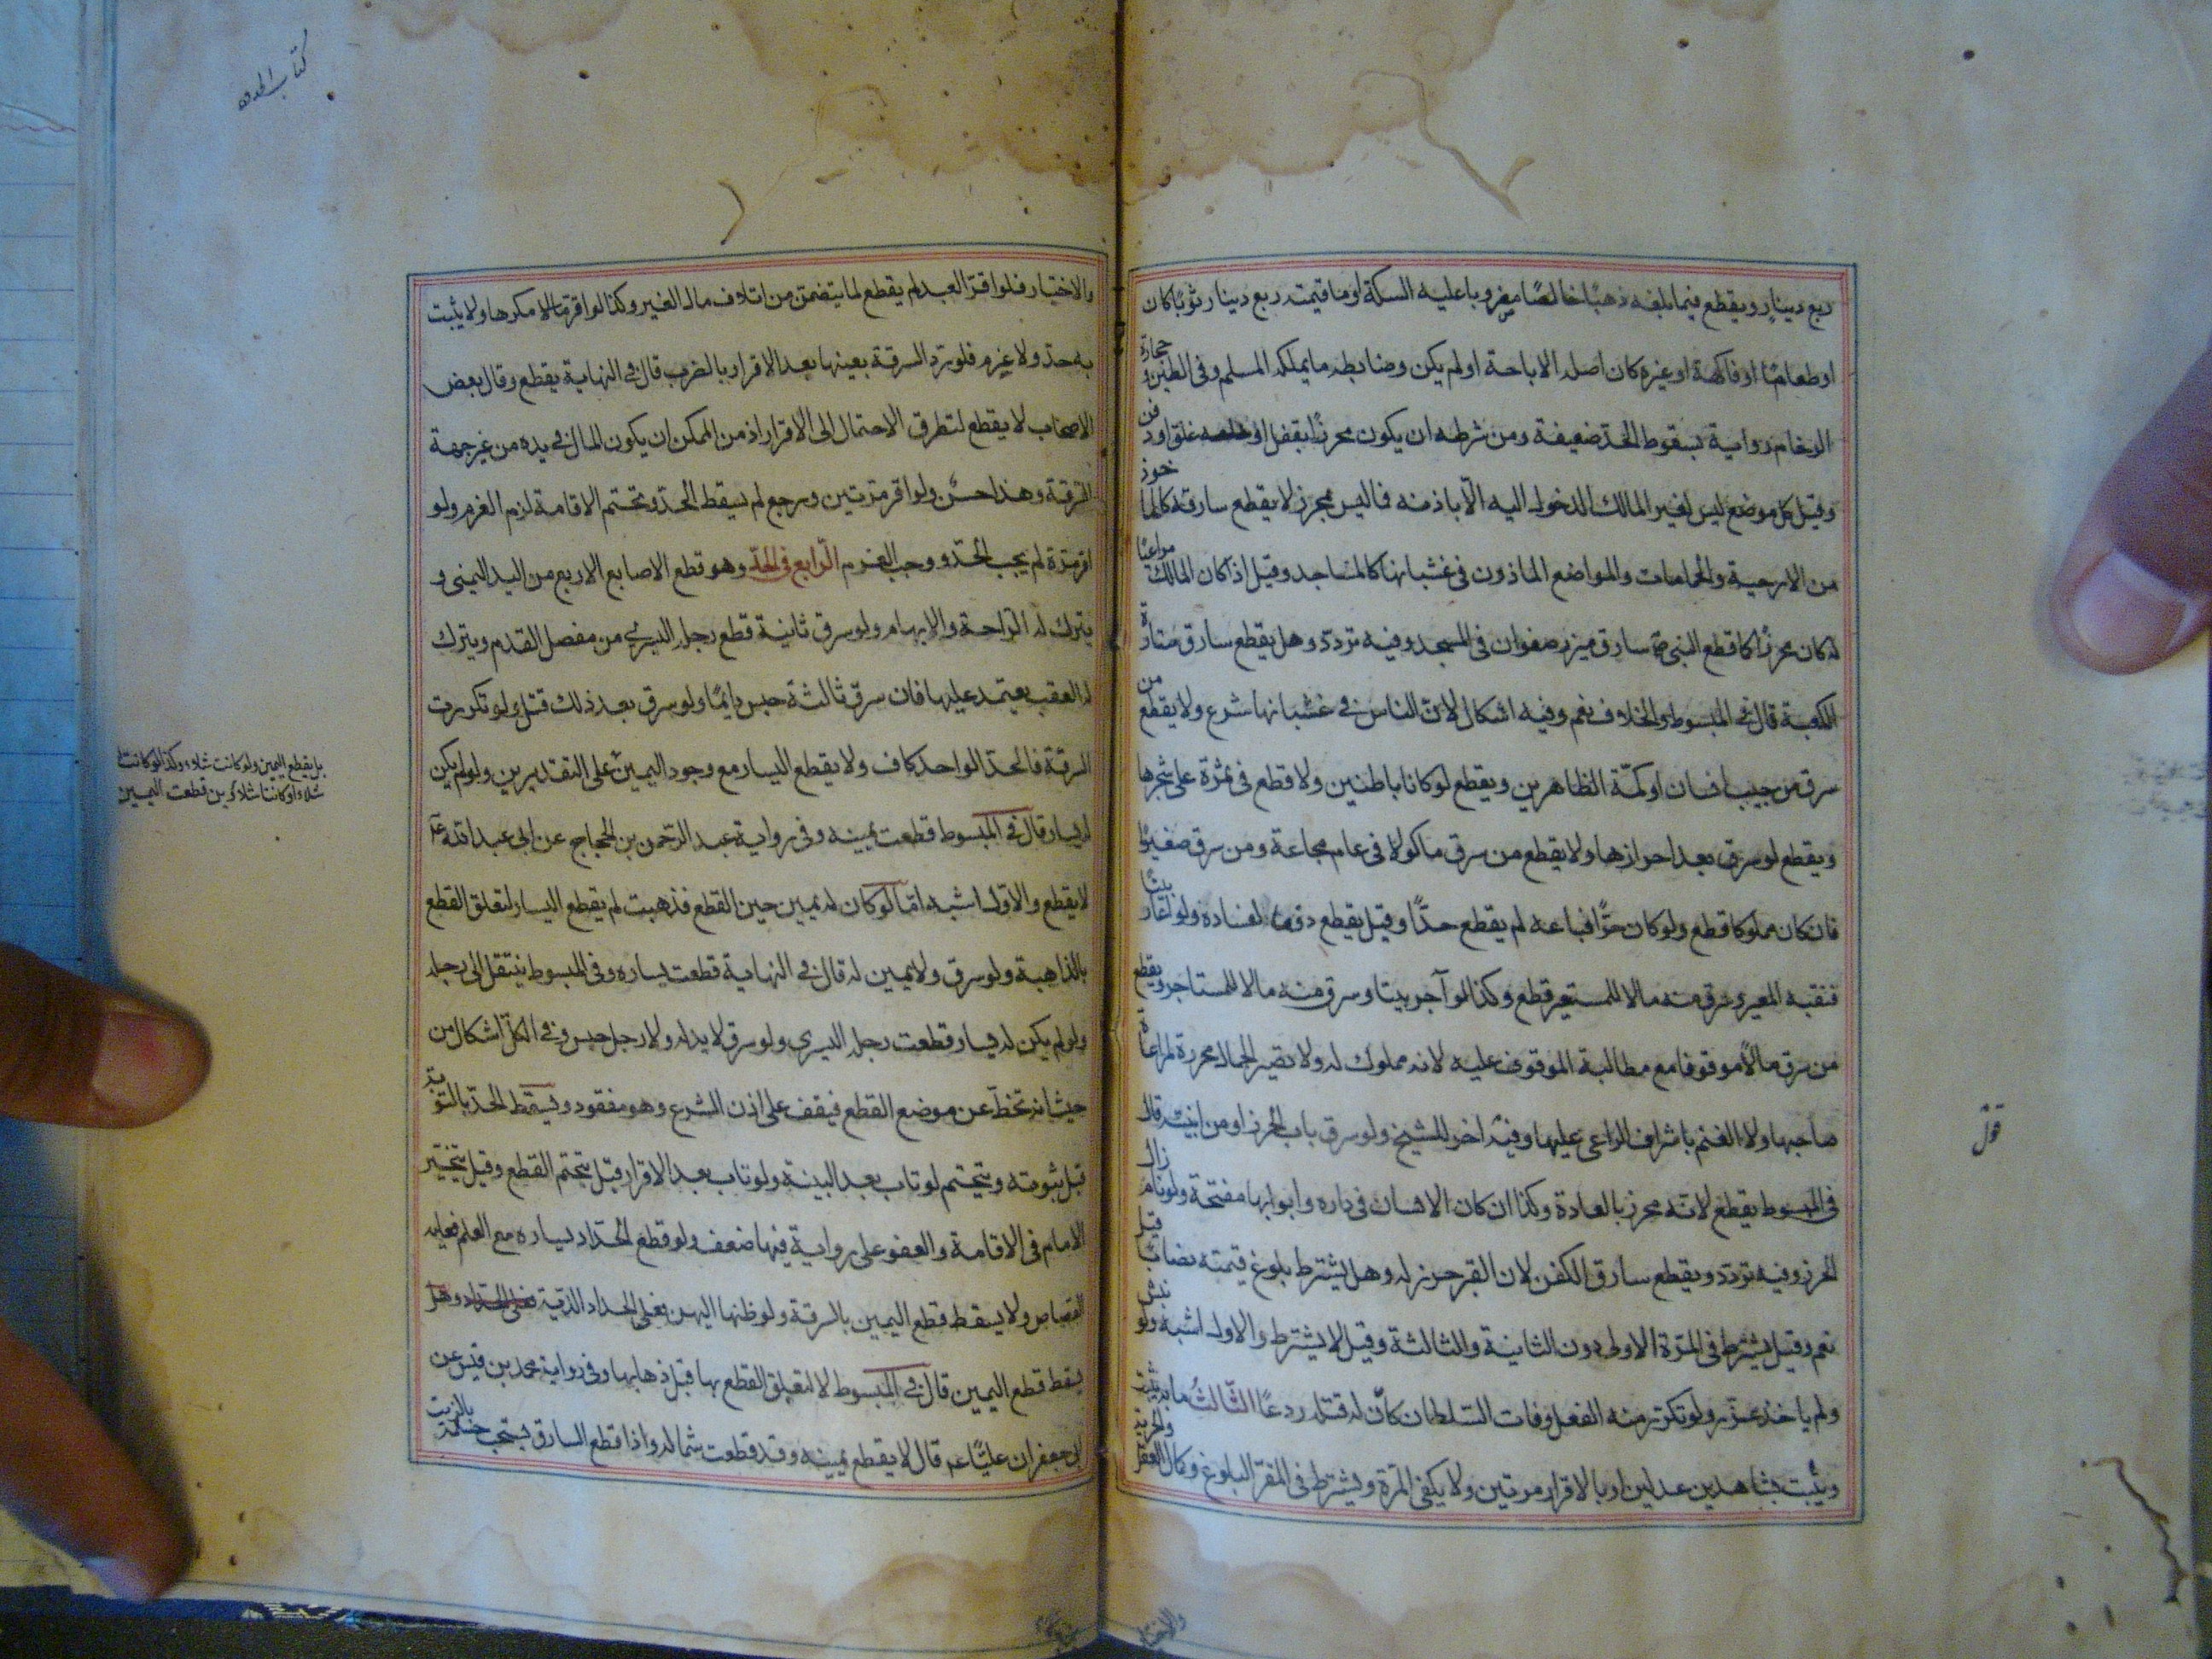 ربع دينار ويقطع فيما بلغه ذهبا خالصا مضروبا عليه السكة او ما قيمته ربع دينار ثوبا كان
او طعاما او فاكهة او غيره كان اصله الاباحة او لم يكن وضابطه ما يملكه المسلم وفى الطين و حجارة
الرخام رواية بسقوط الحد ضعيفة ومن شرطه ان يكون محرزا بقفل او غلق او دفن
وقيل كل موضع ليس لغير المالك الدخول اليه الا باذنه فما ليس بمحرز لا يقطع سارقه كالماخوذ
من الارحية والحمامات والمواضع الماذون فى غشيانها كالمساجد وقيل اذا كان المالك مراعيا
له كان محرزا كما قطع النبى ص سارق ميزر صفوان فى المسجد وفيه تردد وهل يقطع سارق ستارة
الكعبة قال فى المبسوط والخلاف نعم وفيه اشكال لان الناس فى غشيانها شرع ولا يقطع من
سرق من جيب انسان او كمه الظاهرين ويقطع لو كانا باطنين ولا قطع فى ثمرة على شجرها
ويقطع لو سرق بعد احرازها ولا يقطع من سرق ماكولا فى عام مجاعة ومن سرق صغيرا
فان كان مملوكا قطع ولو كان حرا فباعه لم يقطع حدا وقيل يقطع دفعا لفساده ولو اعار بيتا
فنقبه المعير وسرق منه مالا للمستعير قطع وكذا لو آجر بيتا وسرق منه مالا للمستاجر ويقطع
من سرق مالا موقوفا مع مطالبة الموقوف عليه لانه مملوك له ولا تصير الجمال محرزة لمراعاة
صاحبها ولا الغنم باشراف الراعى عليها وفيه اخر للشيخ ولو سرق باب الحرز او من ابنيته قال
فى المبسوط يقطع لانه محرز بالعادة وكذا ان كان الانسان فى داره وابوابها مفتحة ولو نام زال
الحرز وفيه تردد ويقطع سارق الكفن لان القبر حرز له وهل يشترط بلوغ قيمته نصابا قيل
نعم وقيل يشترط فى المرة الاولى دون الثانية والثالثة وقيل لا يشترط والاول اشبه ولو نبش
ولم ياخذ عزر ولو تكرر منه الفعل وفات السلطان كان له قتله ردعا الثالث ما به يثبت
ويثبت بشاهدين عدلين او بالاقرار مرتين ولا يكفى المرة ويشترط فى المقر البلوغ وكمال العقل والحرية
قول
كتاب
والاختيار فلو اقر العبد لم يقطع لما يتضمن من اتلاف مال الغير وكذا لو اقر مكرها ولا يثبت
به حد ولا غرم فلو رد السرقة بعينها بعد الاقرار بالضرب قال فى النهاية يقطع وقال بعض
الاصحاب لا يقطع لتطرق الاحتمال الى الاقرار اذ من الممكن ان يكون المال فى يده من غير جهة
السرقة وهذا حسن ولو اقر مرتين ورجع لم يسقط الحد وتحتم الاقامة لزم الغرم ولو
اقر مرة لم يجب الحد ووجب الغرم الرابع فى الحد وهو قطع الاصابع الاربع من اليد اليمنى و
يترك له الراحة والابهام ولو سرق ثانية قطع رجله اليسرى من مفصل القدم ويترك
له العقب يعتمد عليها فان سرق ثالثة حبس دايما ولو سرق بعد ذلك قتل ولو تكررت
السرقة فالحد الواحد كاف ولا يقطع اليسار مع وجود اليمين على التقديرين ولو لم يكن
له يسار قال فى المبسوط قطعت يمينه وفى رواية عبد الرحمن بن الحجاج عن ابى عبد الله ع
لا يقطع والاول اشبه اما لو كان له يمين حين القطع فذهبت لم يقطع اليسار لتعلق القطع
بالذاهبة ولو سرق ولا يمين له قال فى النهاية قطعت يساره وفى المبسوط ينتقل الى رجله
ولو لم يكن له يسار قطعت رجله اليسرى ولو سرق لا يد له ولا رجل حبس وفى الكل اشكال من
حيث انه تخط عن موضع القطع فيقف على اذن الشرع وهو مفقود ويسقط الحد بالتوبة
قبل ثبوته ويتحتم لو تاب بعد البينة ولو تاب بعد الاقرار قيل يتحتم القطع وقيل يتخير
الامام فى الاقامة والعفو على رواية فيها ضعف ولو قطع الحداد يساره مع العلم فعليه
القصاص ولا يسقط قطع اليمين بالسرقة ولو ظنها اليمين فعلى الحداد الدية وهل
يسقط قطع اليمين قال فى المبسوط لا لتعلق القطع بها قبل ذهابها وفى رواية محمد بن قيس عن
ابى جعفر ان عليا ع قال لا يقطع يمينه وقد قطعت شماله واذا قطع السارق يستحب حسمه بالزيت
بل يقطع اليمين ولو كانت شلاء وكذا لو كانت
شلاء او كانتا شلاوين قطعت اليمين